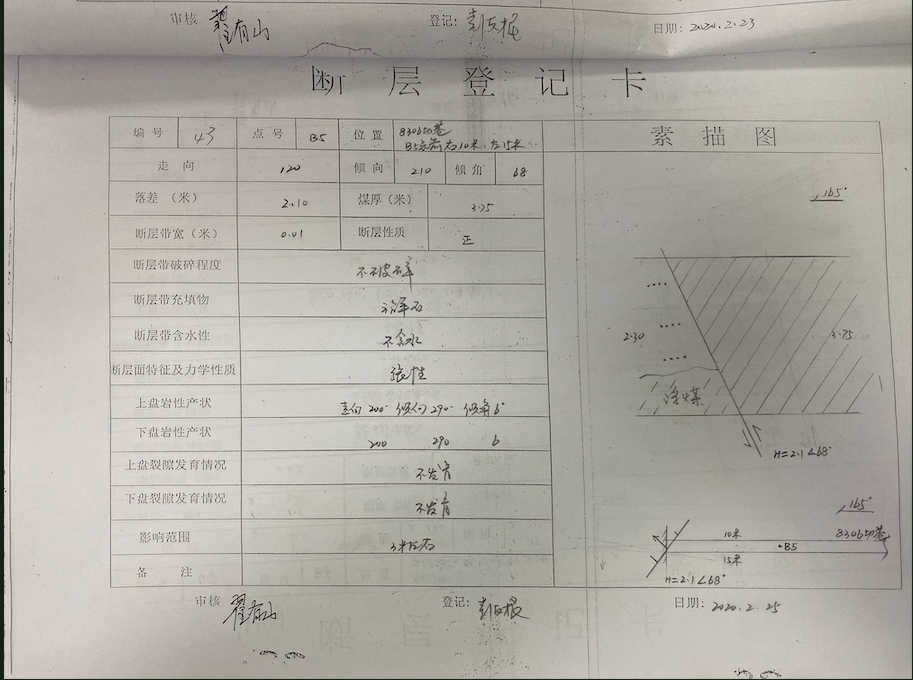 审核 翟有山 登记: 日期: 2020.2.23
断层登记卡
编号 43 点号 B5 位置 8306切巷
B5点前右10米,左15米
素描图
走向 120 倾向 210 倾角 68
落差（米） 2.10 煤厚（米） 3.75
断层带宽（米） 0.01 断层性质 正
断层带破碎程度 不破碎
断层带充填物
断层带含水性 不含水
断层面特征及力学性质 张性
上盘岩性产状 走向200° 倾向290° 倾角6°
下盘岩性产状 200 290 6
上盘裂隙发育情况 不发育
下盘裂隙发育情况 不发育
影响范围 3米左右
备注
165°
2.30
3.75
浮煤
H=2.1∠68°
165°
8306切巷
10米
B5
15米
H=2.1∠68°
审核 翟有山 登记: 日期: 2020.2.25